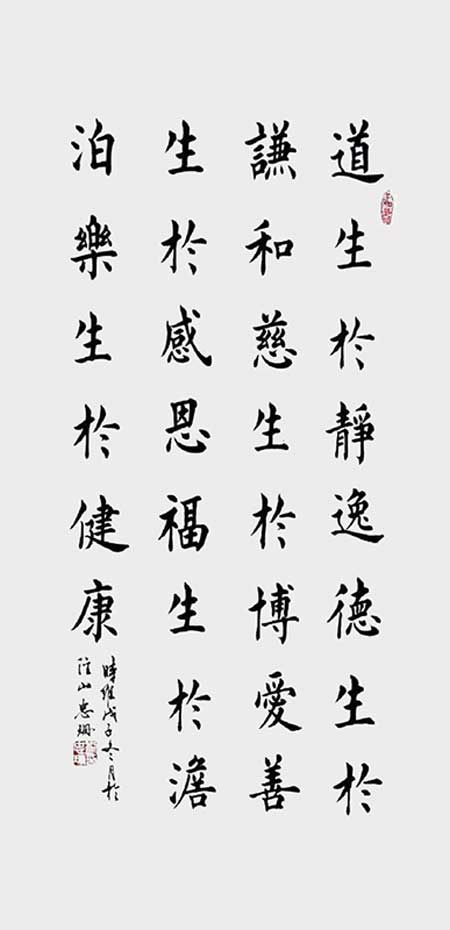 道生於靜逸德生於
謙和慈生於博愛善
生於感恩福生於澹
泊樂生於健康
時維戊子冬月於
山惠